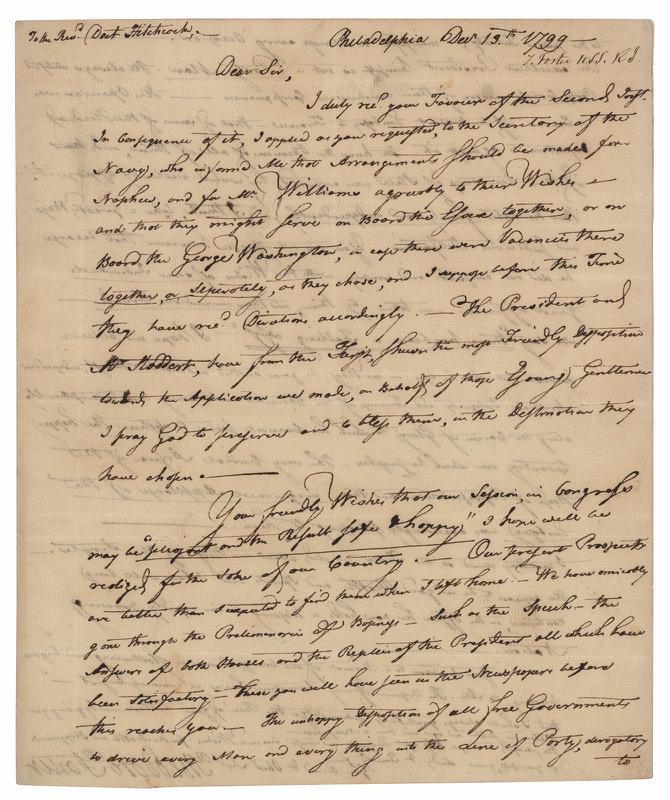 To the Revd. Doct Hitchcock, — Philadelphia Decr. 13.th 1799 —
T. Foster USS. R I.
Dear Sir,
I duly recd. your Favour of the Second Inst.
In Consequence of it, I applied as you requested to the Secretary of the
Navy, who informed Me that Arrangements should be made for
Nephew, and for Mr. Williams agreeably to their Wishes —
and that they might serve on Board the Essex together, or on
Board the George Washington, in case there were Vacancies there
together, or Seperately, as they chose, and I suppose before this Time
they have recd. Directions accordingly. — The President and
Mr Stoddert, have from the first, shewn the most Friendly Disposition
towards the Application we made, on Behalf of those Young Gentlemen
I pray God to preserve and to bless them, in the Destination they
have chosen. —
Your friendly Wishes that our Session, in Congress
may be "pleasant and the Result safe & happy" I hope will be
realized for the Sake of our Country. — Our present Prospects
are better than I expected to find them when I left home. — We have amicably
gone through the Preliminaries of Business — Such as the Speech — the
Answers of both Houses and the Replies of the President all which have
been satisfactory — These you will have seen in the Newspapers before
this reaches you — The unhappy Disposition of all free Governments
to drive every Man and every thing into the Line of Party, derogatory
to